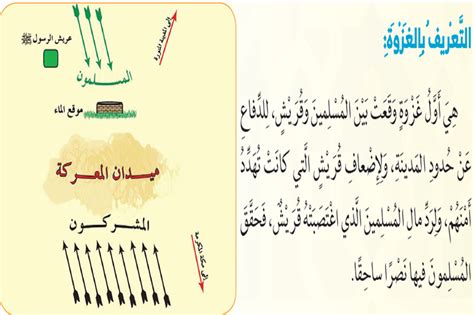 التَّعْرِيفُ بِالغَزْوَةِ:
هِيَ أَوَّلُ غَزْوَةٍ وَقَعَتْ بَيْنَ المُسْلِمِينَ وَقُرَيْشٍ، لِلدِّفَاعِ
عَنْ حُدُودِ المَدِينَةِ، وَلِإِضْعَافِ قُرَيْشٍ الَّتِي كَانَتْ تُهَدِّدُ
أَمْنَهُمْ، وَلِرَدِّ مَالِ المُسْلِمِينَ الَّذِي اغْتَصَبَتْهُ قُرَيْشٌ، فَحَقَّقَ
المُسْلِمُونَ فِيهَا نَصْرًا سَاحِقًا.
إلى المدينة المنورة
عريش الرسول ﷺ
المسلمون
موقع الماء
ميدان المعركة
المشركون
إلى مكة المكرمة